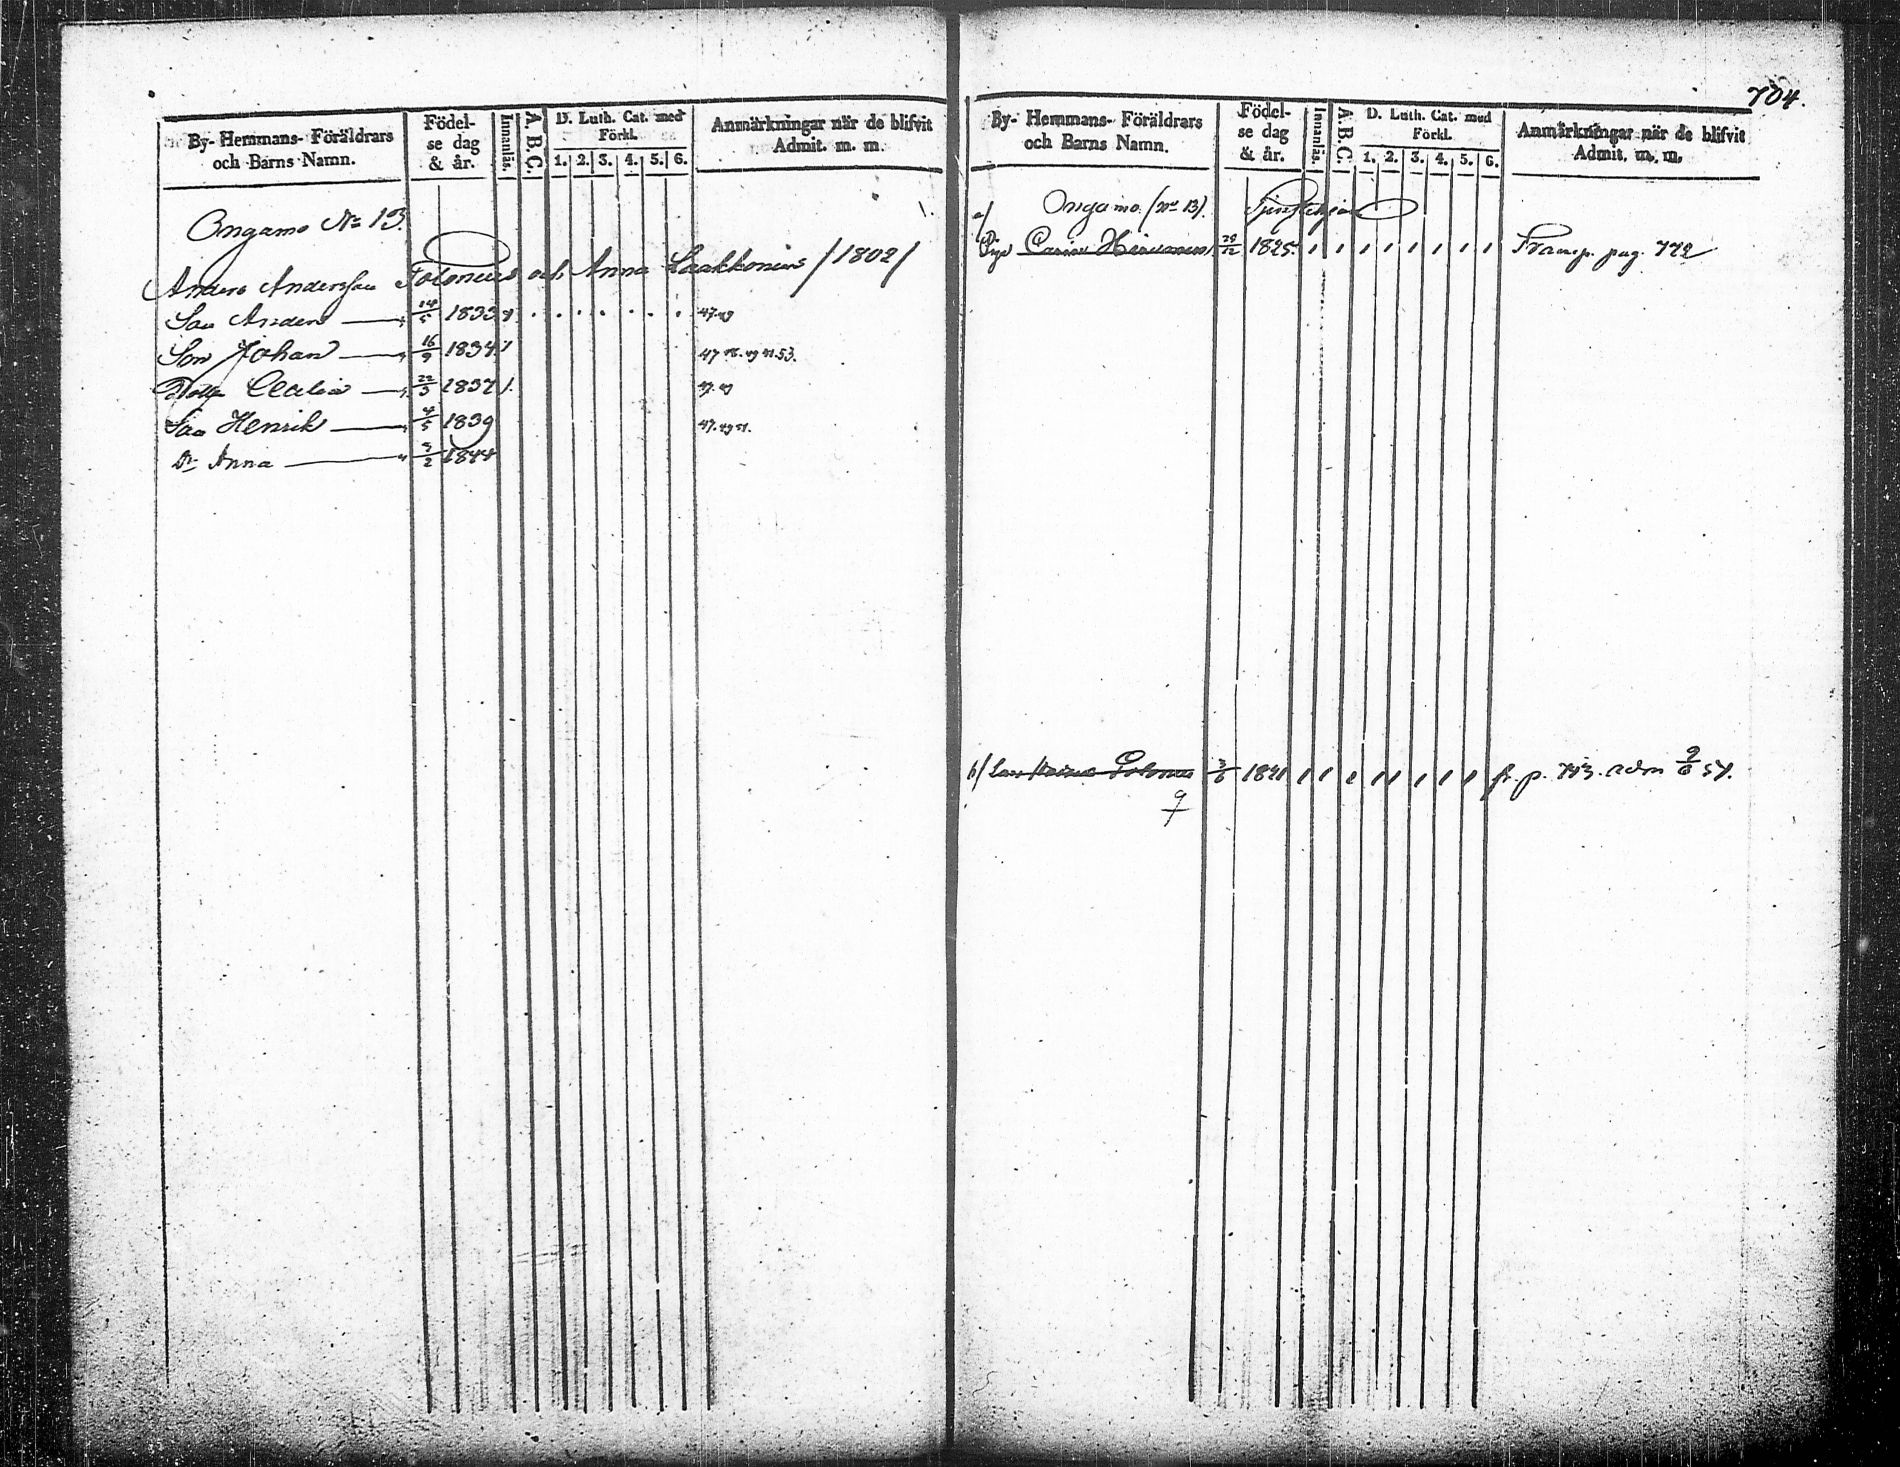 704.
By- Hemmans- Föräldrars och Barns Namn.
Födelse dag & år.
Innanläs.
A. B. C.
D. Luth. Cat. med Förkl.
1. 2. 3. 4. 5. 6.
Anmärkningar när de blifvit Admit. m. m.
Ongamo No 13.
Anders Andersson Tolonus och Anna Laakkonius /1802/
Son Anders 14/5 1833
Son Johan 16/9 1834
Cecilia 22/3 1837
Son Henrik 4/5 1839
Dr Anna 3/2 1844
By- Hemmans- Föräldrars och Barns Namn.
Födelse dag & år.
Innanläs.
A. B. C.
D. Luth. Cat. med Förkl.
1. 2. 3. 4. 5. 6.
Anmärkningar när de blifvit Admit. m. m.
a/ Ongamo. (No 13).
Pig. Carin 1825. Transp. pag. 772
b/ 3/6 1841 fr. p. 703. adm 9/6 57.